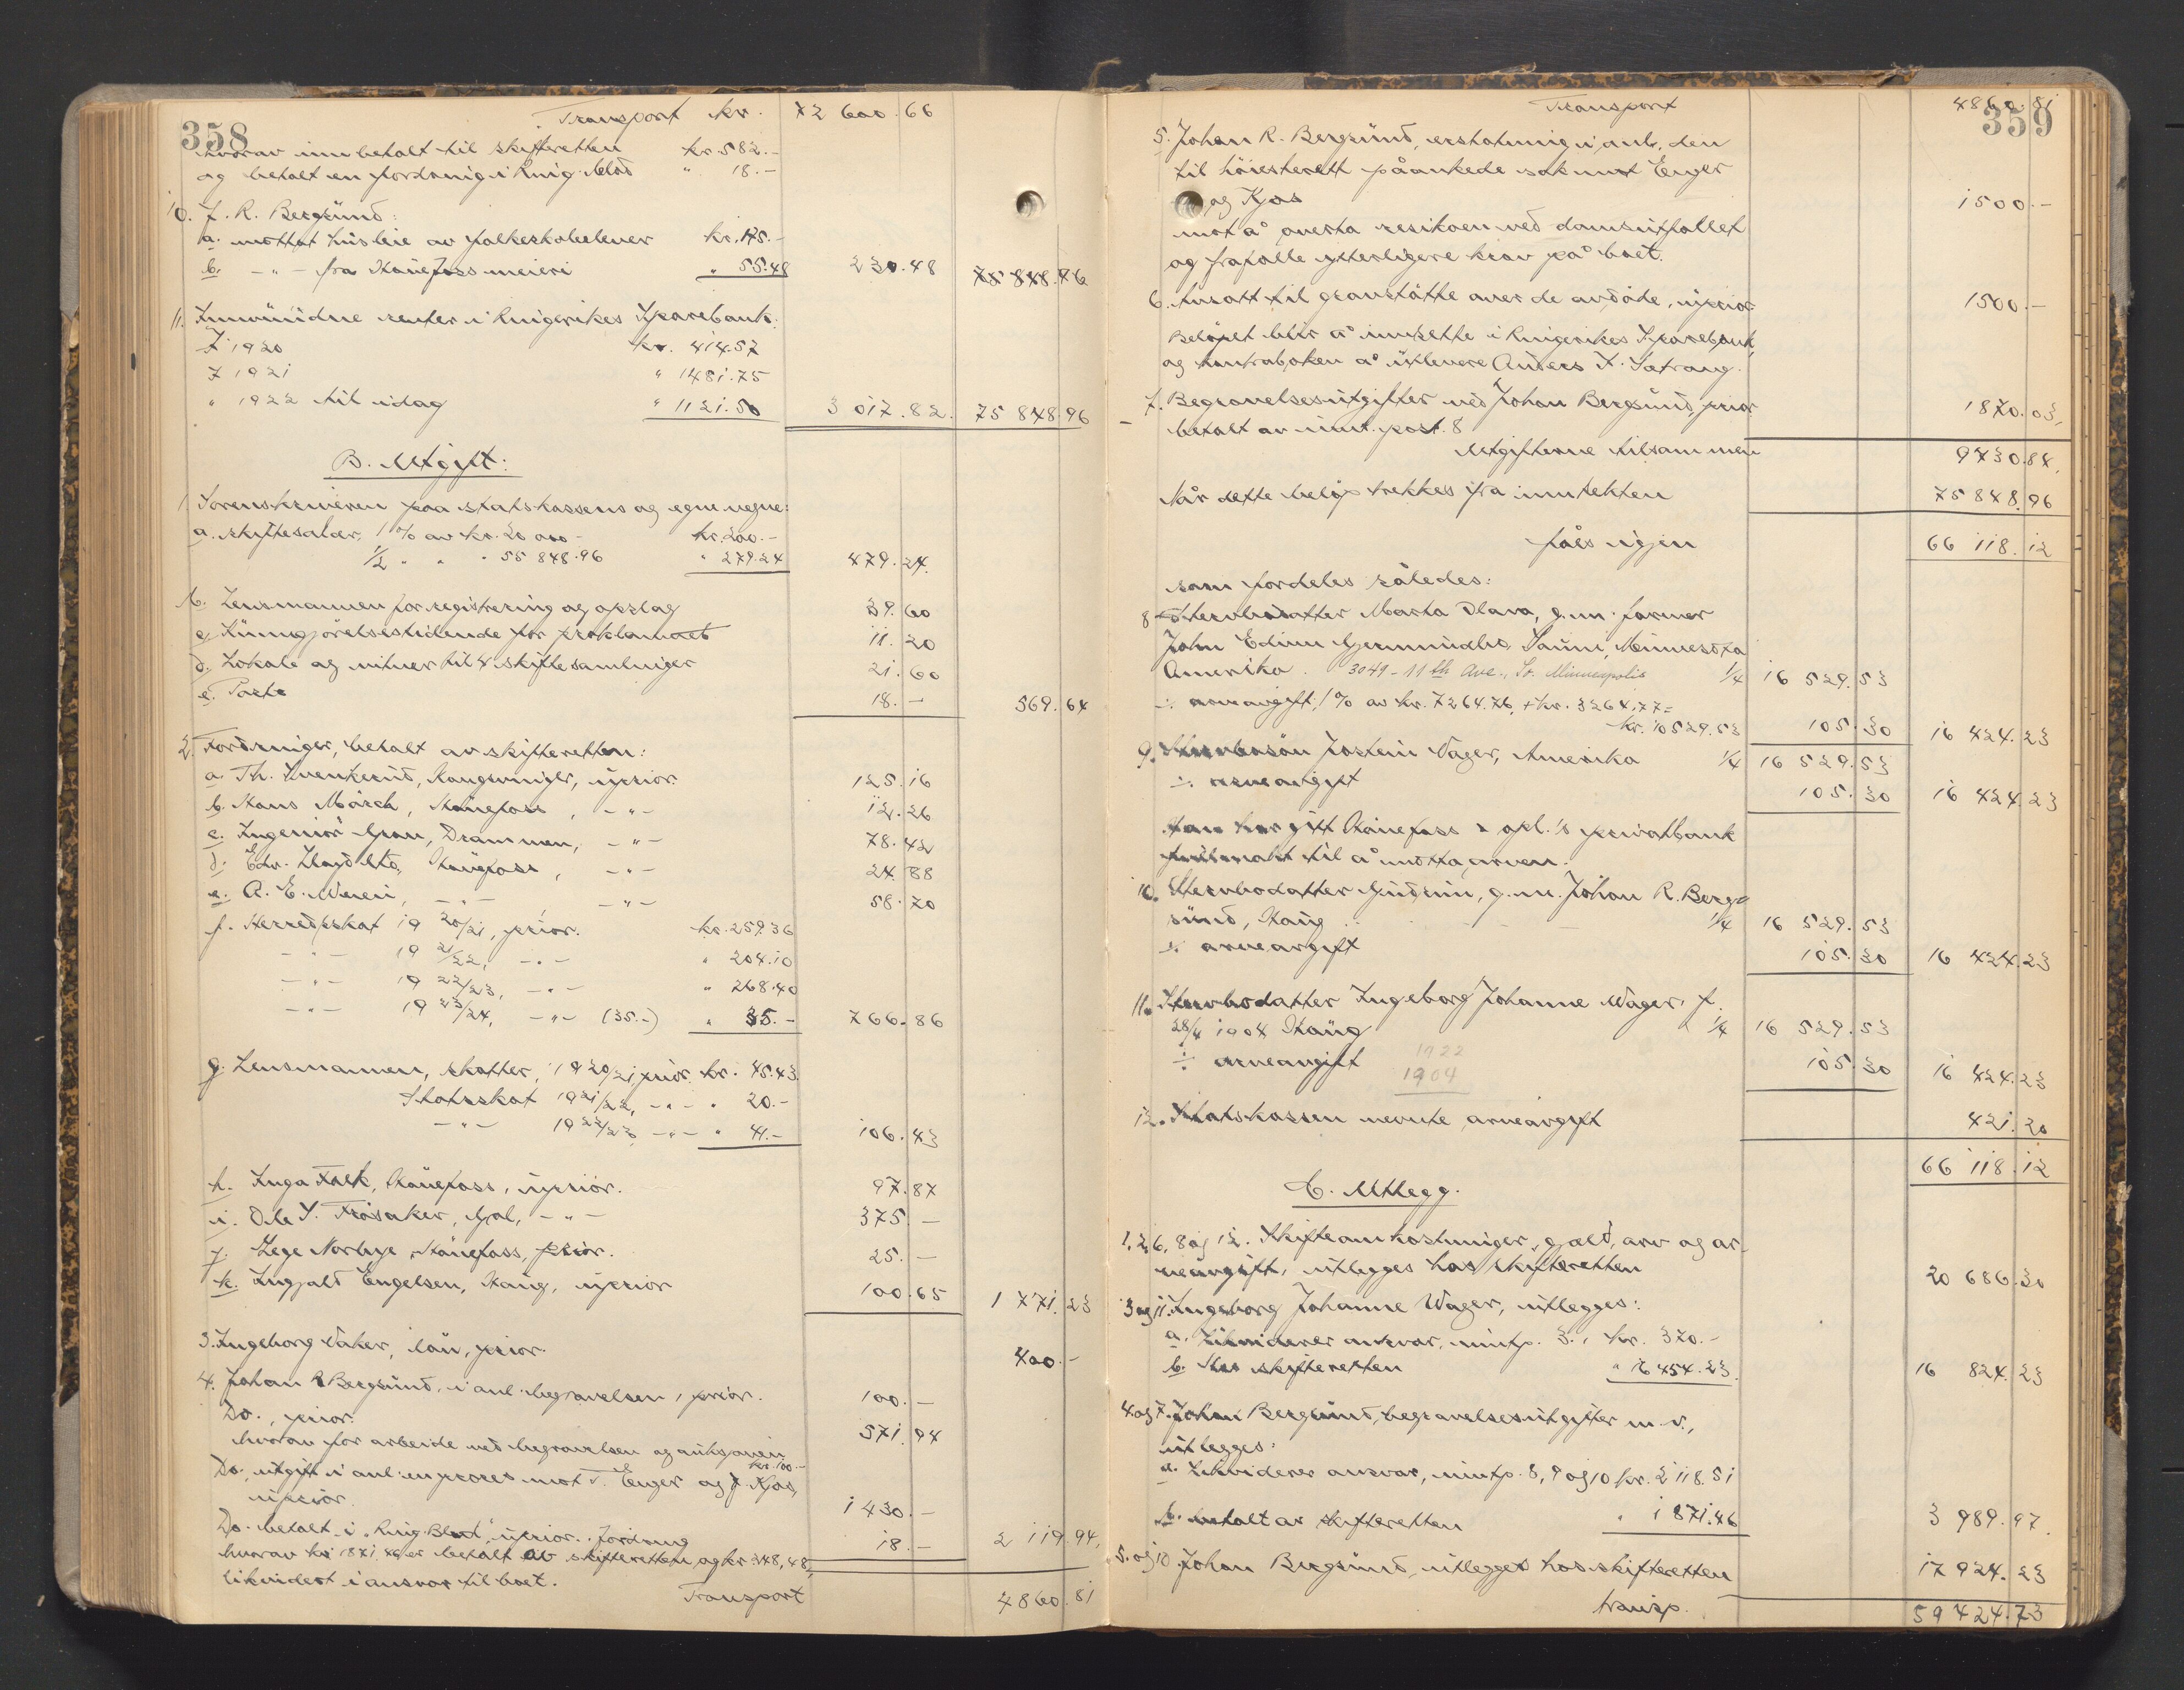 358
Transport kr. 72 600.66
hvorav innbetalt til skifteretten kr. 582.-
og betalt en fordring i Ring. Blad " 18.-
10. J. R. Bergsund:
a. mottat husleie av folkeskolelever kr. 175.-
b. -"- fra Hønefoss meieri " 55.48 230.48 75 848.96
11. Innvundne renter i Ringerikes Sparebank:
I 1920 kr. 414.57
I 1921 " 1481.75
" 1922 til idag " 1121.50 3 017.82. 75 848.96
B. Utgift:
1. Sorenskriveren paa statskassens og egne vegne:
a. skiftesalær, 1% av kr. 20 000 - kr. 200.-
1/2 " " " 55 848.96 " 279.24 479.24.
b. Lensmannen for registrering og opslag 39.60
c. Kunngjörelsestidende for proklamaet 11.20
d. Lokale og vitner til 4 skiftesamlinger 21.60
e. Porto 18.- 569.64
2. Fordringer, betalt av skifteretten:
a. Th. Svenkerud, Haugsrunigh, uprior. 125.16
b. Hans Mörch, Hønefoss, -"- 12.26
c. Ingeniör Gran, Drammen, -"- 78.42
d. Edv. Lloyd Ltd, Hønefoss, -"- 24.88
e. A. E. Meieri, -"- -"- 58.70
f. Herredsskat 1920/21, prior. kr. 259.36
-"- 1921/22, -"- " 204.10
-"- 1922/23, -"- " 268.40
-"- 1923/24, -"- (35.-) " 35.- 766.86
g. Lensmannen, skatter, 1920/21 prior. kr. 45.43.
Statsskat 1921/22, -"- " 20.-
-"- 1922/23 -"- " 41.- 106.43
h. Inga Falk, Hønefoss, uprior. 97.87
i. Ole Y. Fråsaker, Gol, -"- 375.-
j. Lege Norbye, Hønefoss, prior. 25.-
k. Ingjald Engelsen, Haug, uprior 100.65 1 771.23
3. Ingeborg Vaker, lån, prior. 400.-
4. Johan R Bergsund, i anl. begravelsen, prior. 100.-
Do., prior. 571.94
hvorav for arbeide ved begravelsen og auksjonen kr. 100.-
Do. utgift i anl. en proces mot T. Enger og J. Kjos,
uprior. 1 430.-
Do. betalt i "Ring. Blad", uprior. fordring 18.- 2 119.94.
hvorav kr. 1871.46 er betalt av skifteretten og kr. 248,48
likvidert i ansvar til boet.
Transport 4860.81
359
Transport 4860.81
5. Johan R. Bergsund, erstatning i anl. den
til höiesterett påankede sak mot Enger
og Kjos 1500.-
mot å overta resikoen ved domsutfallet
og frafalle ytterligere krav på boet.
6. Avsatt til gravstötte over de avdöde, uprior. 1500.-
Belöpet blir å innsette i Ringerikes Sparebank,
og kontraboken å utlevere Anders T. Sætrang.
7. Begravelsesutgifter ved Johan Bergsund, prior. 1870.03.
betalt av innt. post. 8
Utgifterne tilsammen 9730.84.
Når dette belöp trekkes fra inntekten 75 848.96
fåes igjen 66 118.12
som fordeles således:
8. Stervbodatter Marta Olava, g.m. farmer
John Edium Gjermundbo, Sauni, Minnesota
Amerika. 3049 - 11th Ave., So. Minneapolis 1/4 16 529.53
÷ arveavgift, 1% av kr. 7264.76, + kr. 3264.77 =
kr. 10529.53 105.30 16 424.23
9. Stervbosön Jostein Vager, Amerika 1/4 16 529.53
÷ arveavgift 105.30 16 424.23
Han har gitt Hønefoss & opl.'s privatbank
fullmakt til å motta arven.
10. Stervbodatter Gudrun, g.m. Johan R. Berg-
sund, Haug 1/4 16 529.53
÷ arveavgift 105.30 16 424.23
11. Stervbodatter Ingeborg Johanne Wager, f.
28/4 1904 Haug 1/4 16 529.53
÷ arveavgift 105.30 16 424.23
1922
1904
12. Statskassen nevnte arveavgift 421.20
66 118.12
C. Utlegg.
1, 2, 6, 8 og 12. Skifteomkostninger, gjæld, arv og ar-
veavgift, utlegges hos skifteretten 20 686.30
3 og 11. Ingeborg Johanne Wager, utlegges:
a. Likviderer ansvar, inntp. 3., kr. 370.-
b. Hos skifteretten " 16 454.23 16 824.23
4 og 7. Johan Bergsund, begravelsesutgifter m.v.,
utlegges:
a. Likviderer ansvar, inntp. 8, 9 og 10 kr. 2118.51
b. betalt av skifteretten " 1 871.46 3 989.97.
5. og 10. Johan Bergsund, utlegges hos skifteretten 17 924.23
transp. 59 424.73